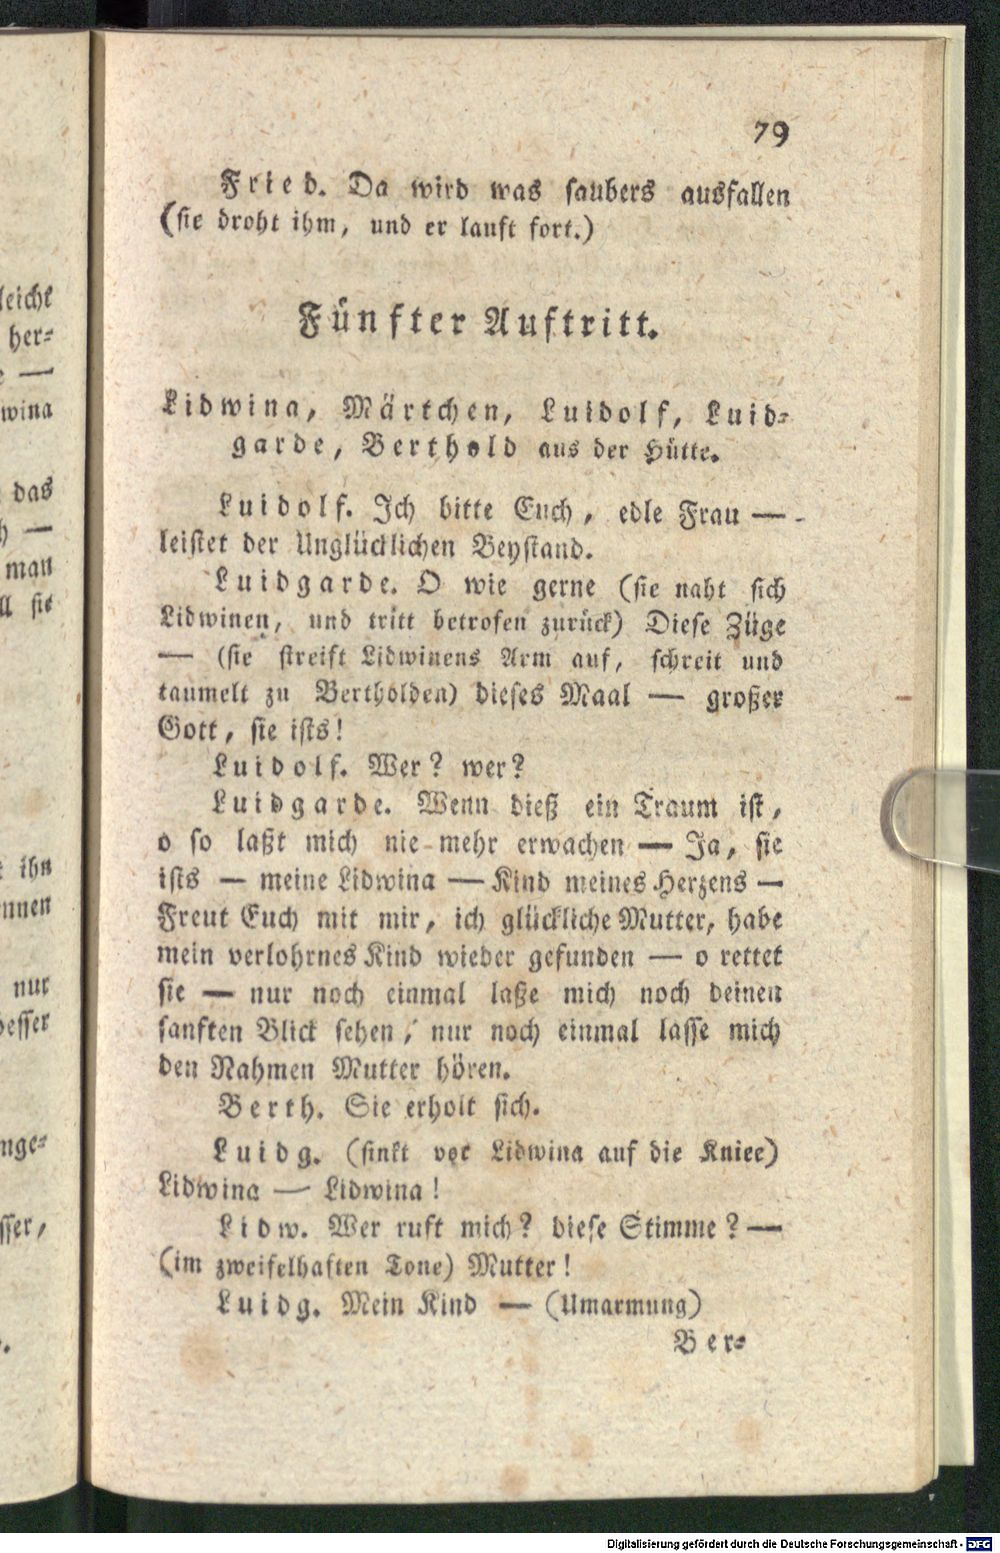 79
Fried. Da wird was saubers ausfallen
(sie droht ihm, und er lauft fort.)
Fünfter Auftritt.
Lidwina, Märtchen, Luidolf, Luid-
garde, Berthold aus der Hütte.
Luidolf. Ich bitte Euch, edle Frau —
leistet der Unglücklichen Beystand.
Luidgarde. O wie gerne (sie naht sich
Lidwinen, und tritt betrofen zurück) Diese Züge
— (sie streift Lidwinens Arm auf, schreit und
taumelt zu Bertholden) dieses Maal — großer
Gott, sie ists!
Luidolf. Wer? wer?
Luidgarde. Wenn dieß ein Traum ist,
o so laßt mich nie mehr erwachen — Ja, sie
ists — meine Lidwina — Kind meines Herzens —
Freut Euch mit mir, ich glückliche Mutter, habe
mein verlohrnes Kind wieder gefunden — o rettet
sie — nur noch einmal laße mich noch deinen
sanften Blick sehen, nur noch einmal lasse mich
den Nahmen Mutter hören.
Berth. Sie erholt sich.
Luidg. (sinkt vor Lidwina auf die Kniee)
Lidwina — Lidwina!
Lidw. Wer ruft mich? diese Stimme? —
(im zweifelhaften Tone) Mutter!
Luidg. Mein Kind — (Umarmung)
Ber-
leicht
her-
e —
wina
das
h —
man
ll sie
t ihn
nnen
nur
besser
nge-
sser,
Digitalisierung gefördert durch die Deutsche Forschungsgemeinschaft - DFG